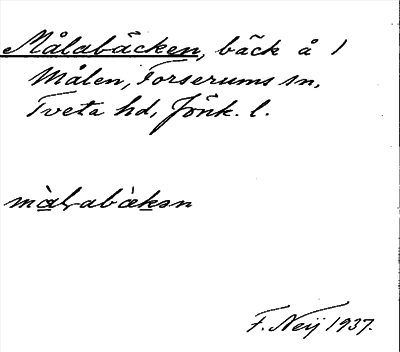 Målabäcken, bäck å 1
Målen, Forserums sn,
Tveta hd, Jönk. l.
mɑ̀labàkən
F. Neij 1937.